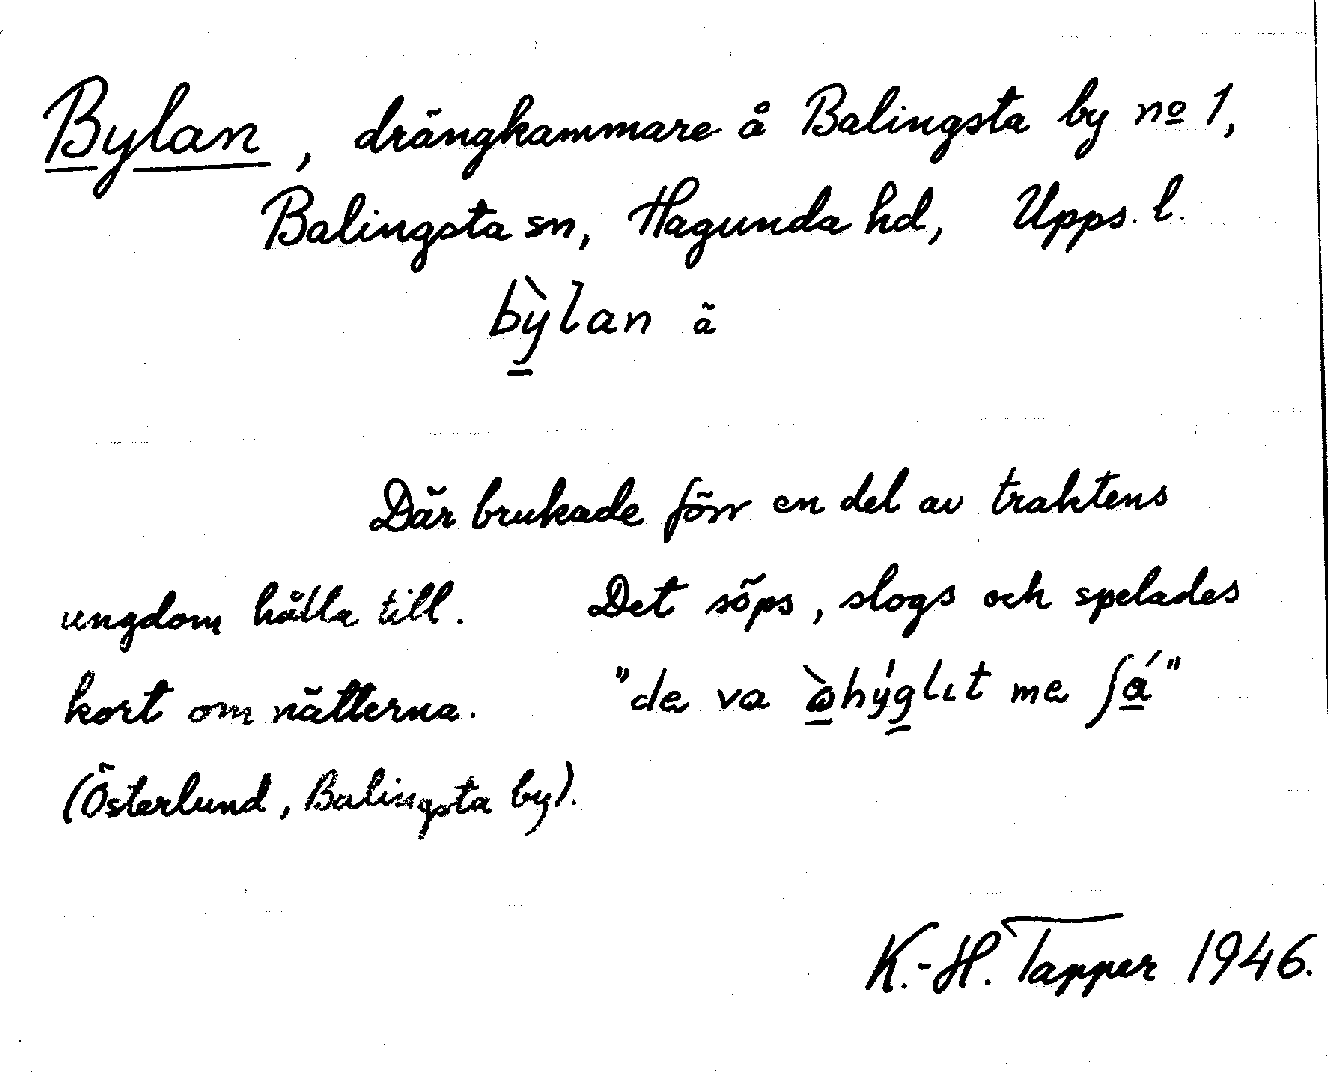 Bylan, drängkammare å Balingsta by nº 1,
Balingsta sn, Hagunda hd, Upps. l.
bỳlan ã
Där brukade förr en del av traktens
ungdom hålla till. Det söps, slogs och spelades
kort om nätterna. "de va òhýglıt me ʃá"
(Österlund, Balingsta by).
K.-H. Tapper 1946.